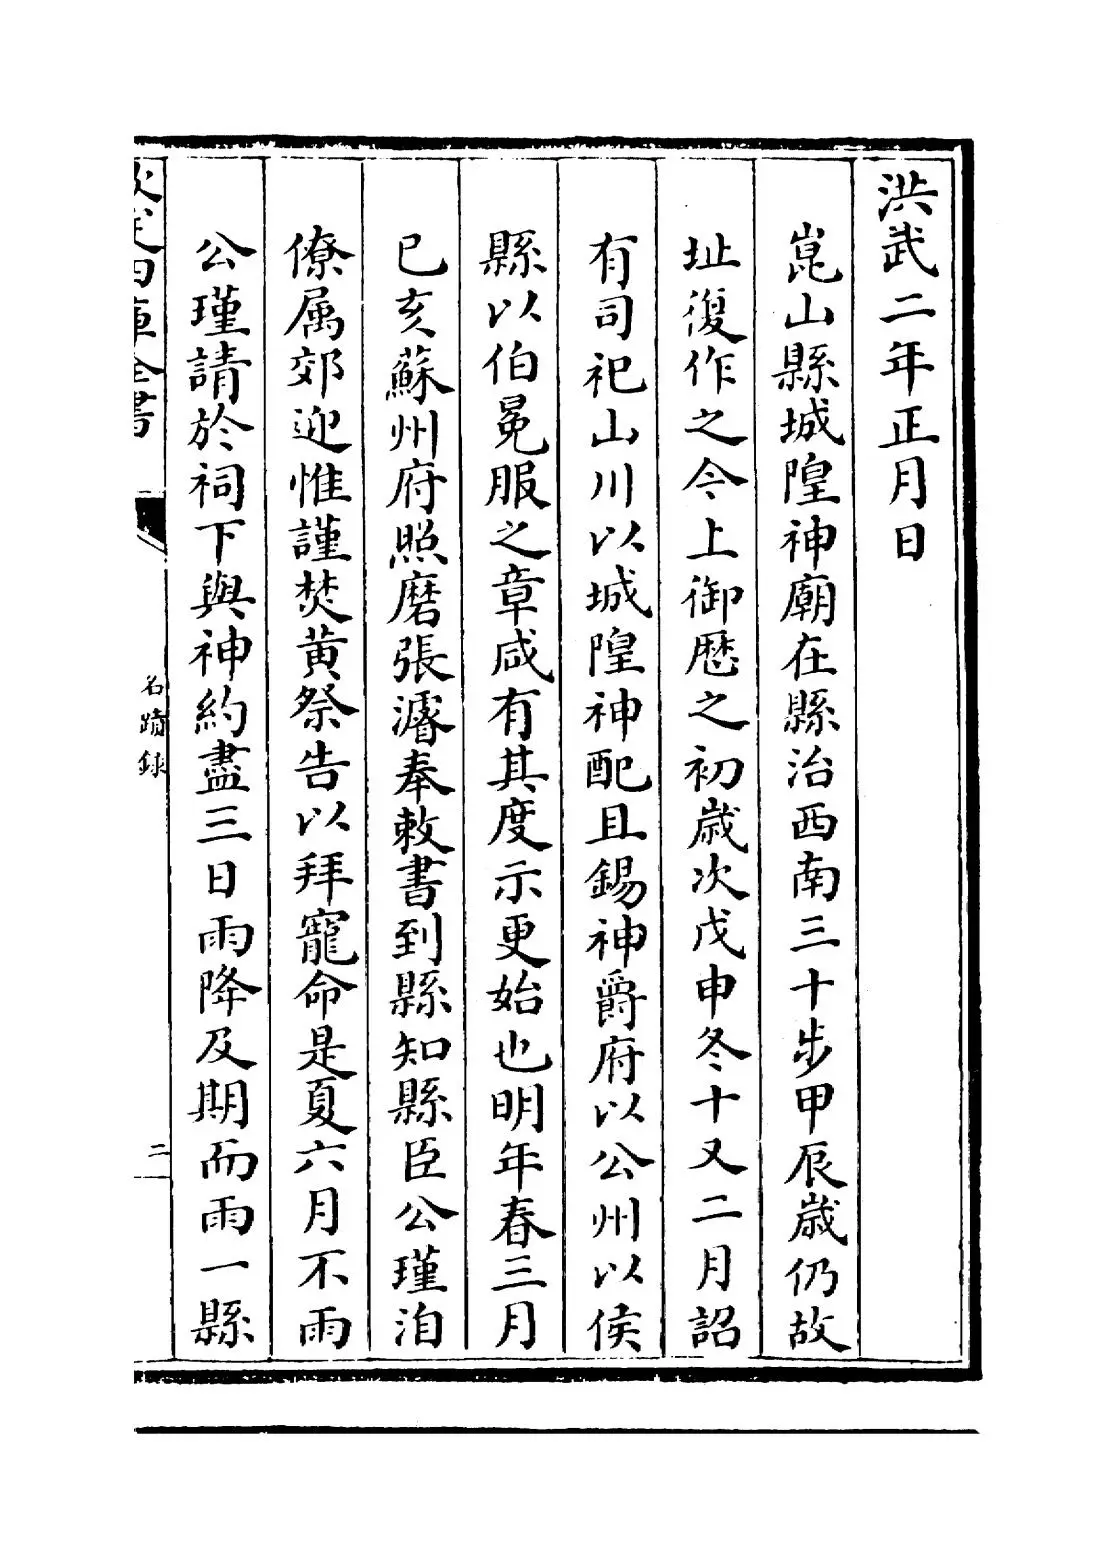 洪武二年正月日
崑山縣城隍神廟在縣治西南三十步甲辰歲仍故
址復作之今上御歷之初歲次戊申冬十又二月詔
有司祀山川以城隍神配且錫神爵府以公州以侯
縣以伯冕服之章咸有其度示更始也明年春三月
已亥蘇州府照磨張濬奉敕書到縣知縣臣公瑾洎
僚属郊迎惟謹焚黄祭告以拜寵命是夏六月不雨
公瑾請於祠下與神約盡三日雨降及期而雨一縣
欽定四庫全書
名蹟錄
二